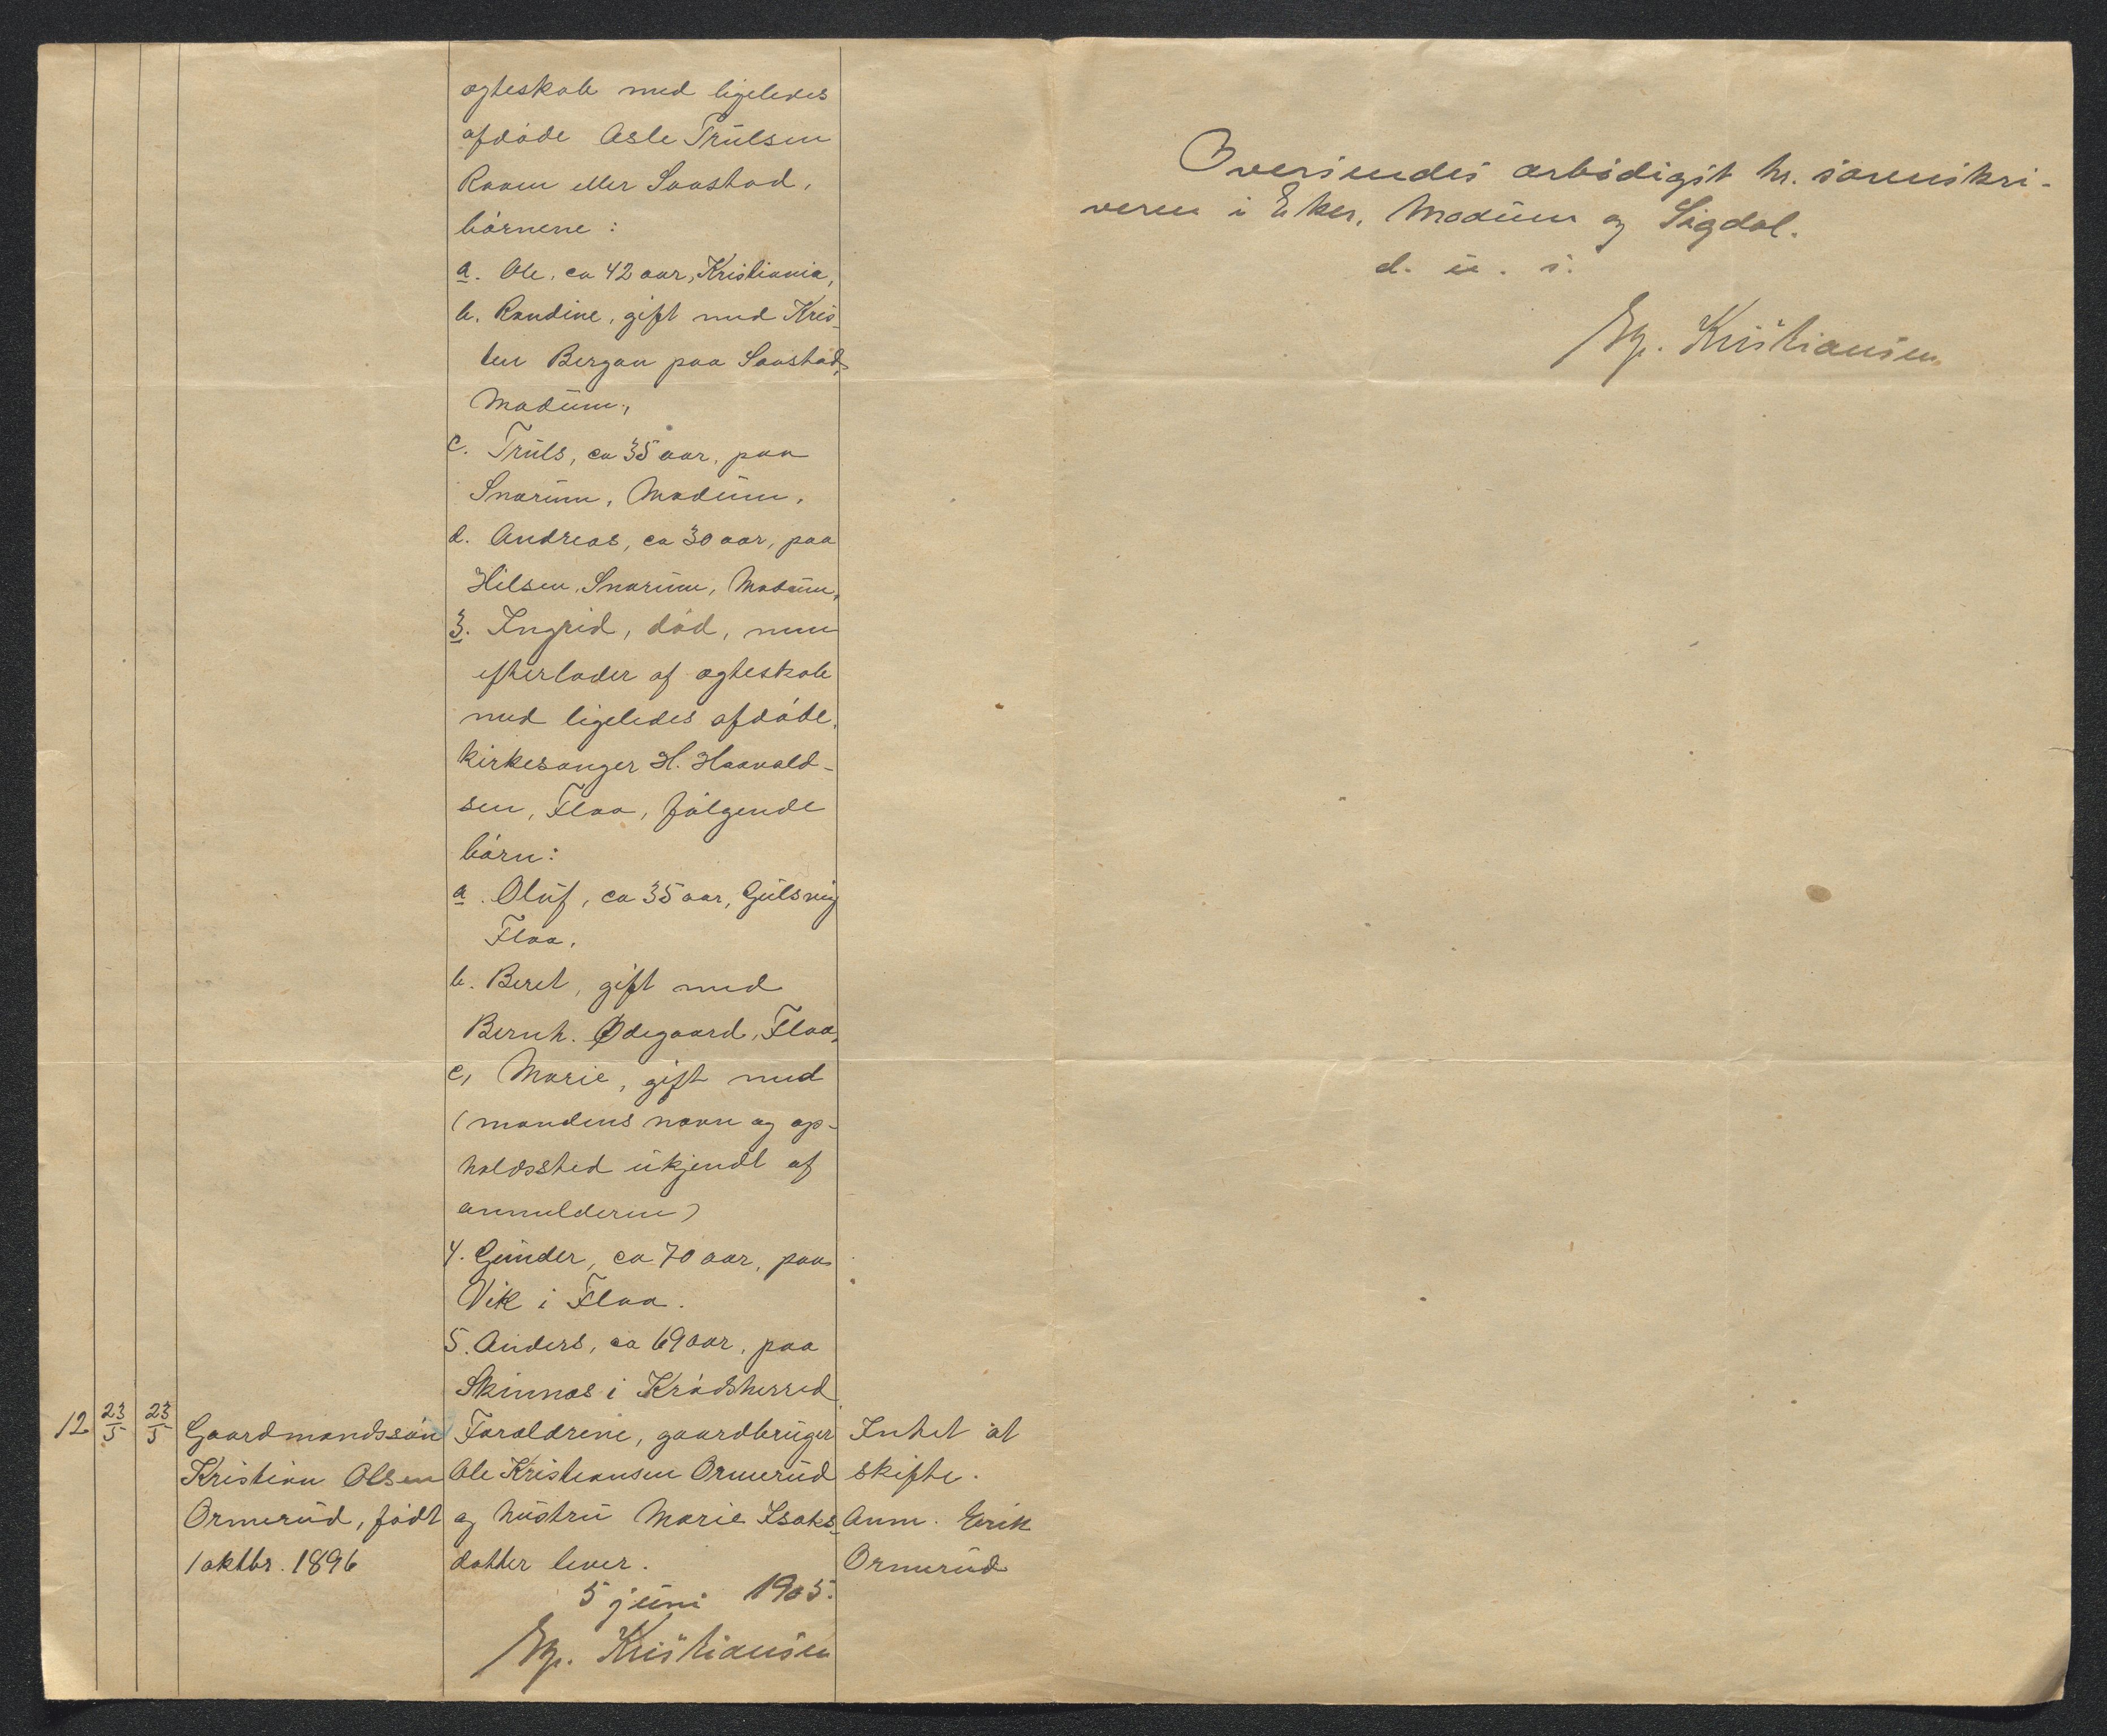 ægteskab med ligeledes
afdøde Asle Trulsen
Raaen eller Saastad,
børnene:
a. Ole, ca 42 aar, Kristiania,
b. Randine, gift med Kris-
ten Bergan paa Saastad,
Modum,
c. Truls, ca 35 aar, paa
Snarum, Modum.
d. Andreas, ca 30 aar, paa
Hilsen, Snarum, Modum.
3. Ingrid, død, men
efterlader af ægteskab
med ligeledes afdøde,
kirkesanger H. Haavald-
sen, Flaa, følgende
børn:
a. Oluf, ca 35 aar, Gulsvig
Flaa.
b. Beret, gift med
Bernh. Ødegaard, Flaa,
c, Marie, gift med
(mandens navn og op-
holdssted ukjendt af
anmelderen)
4. Gunder, ca 70 aar, paa
Vik i Flaa.
5. Anders, ca 69 aar, paa
Skinnæs i Krødsherred
12 23/5 23/5 Gaardmandssøn Forældrene, gaardbruger Intet at
Kristian Olsen Ole Kristiansen Ormerud skifte.
Ormerud, født og hustru Marie Isaks- Anm. Erik
1 oktbr. 1896 datter lever. Ormerud
5 juni 1905.
Kristiansen
Oversendes ærbødigst hr. sorenskri-
veren i Eker, Modum og Sigdal.
d. u. s.
Kristiansen